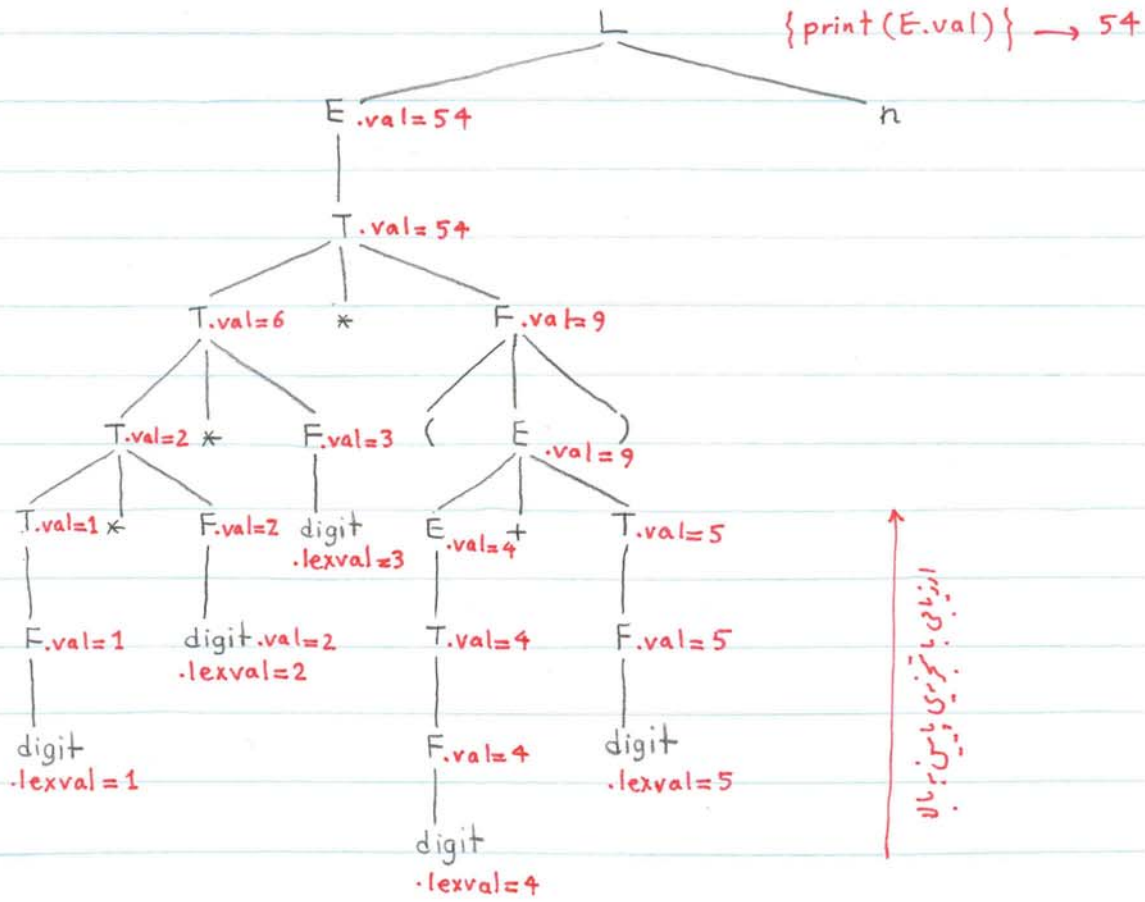 L {print(E.val)} → 54
E.val=54 n
T.val=54
T.val=6 * F.val=9
T.val=2 * F.val=3 ( E.val=9 )
T.val=1 * F.val=2 digit.lexval=3 E.val=4 + T.val=5
F.val=1 digit.val=2 T.val=4 F.val=5
.lexval=2
digit F.val=4 digit
.lexval=1 .lexval=5
digit
.lexval=4
ارزیابی با تجزیه‌ی پایین به بالا